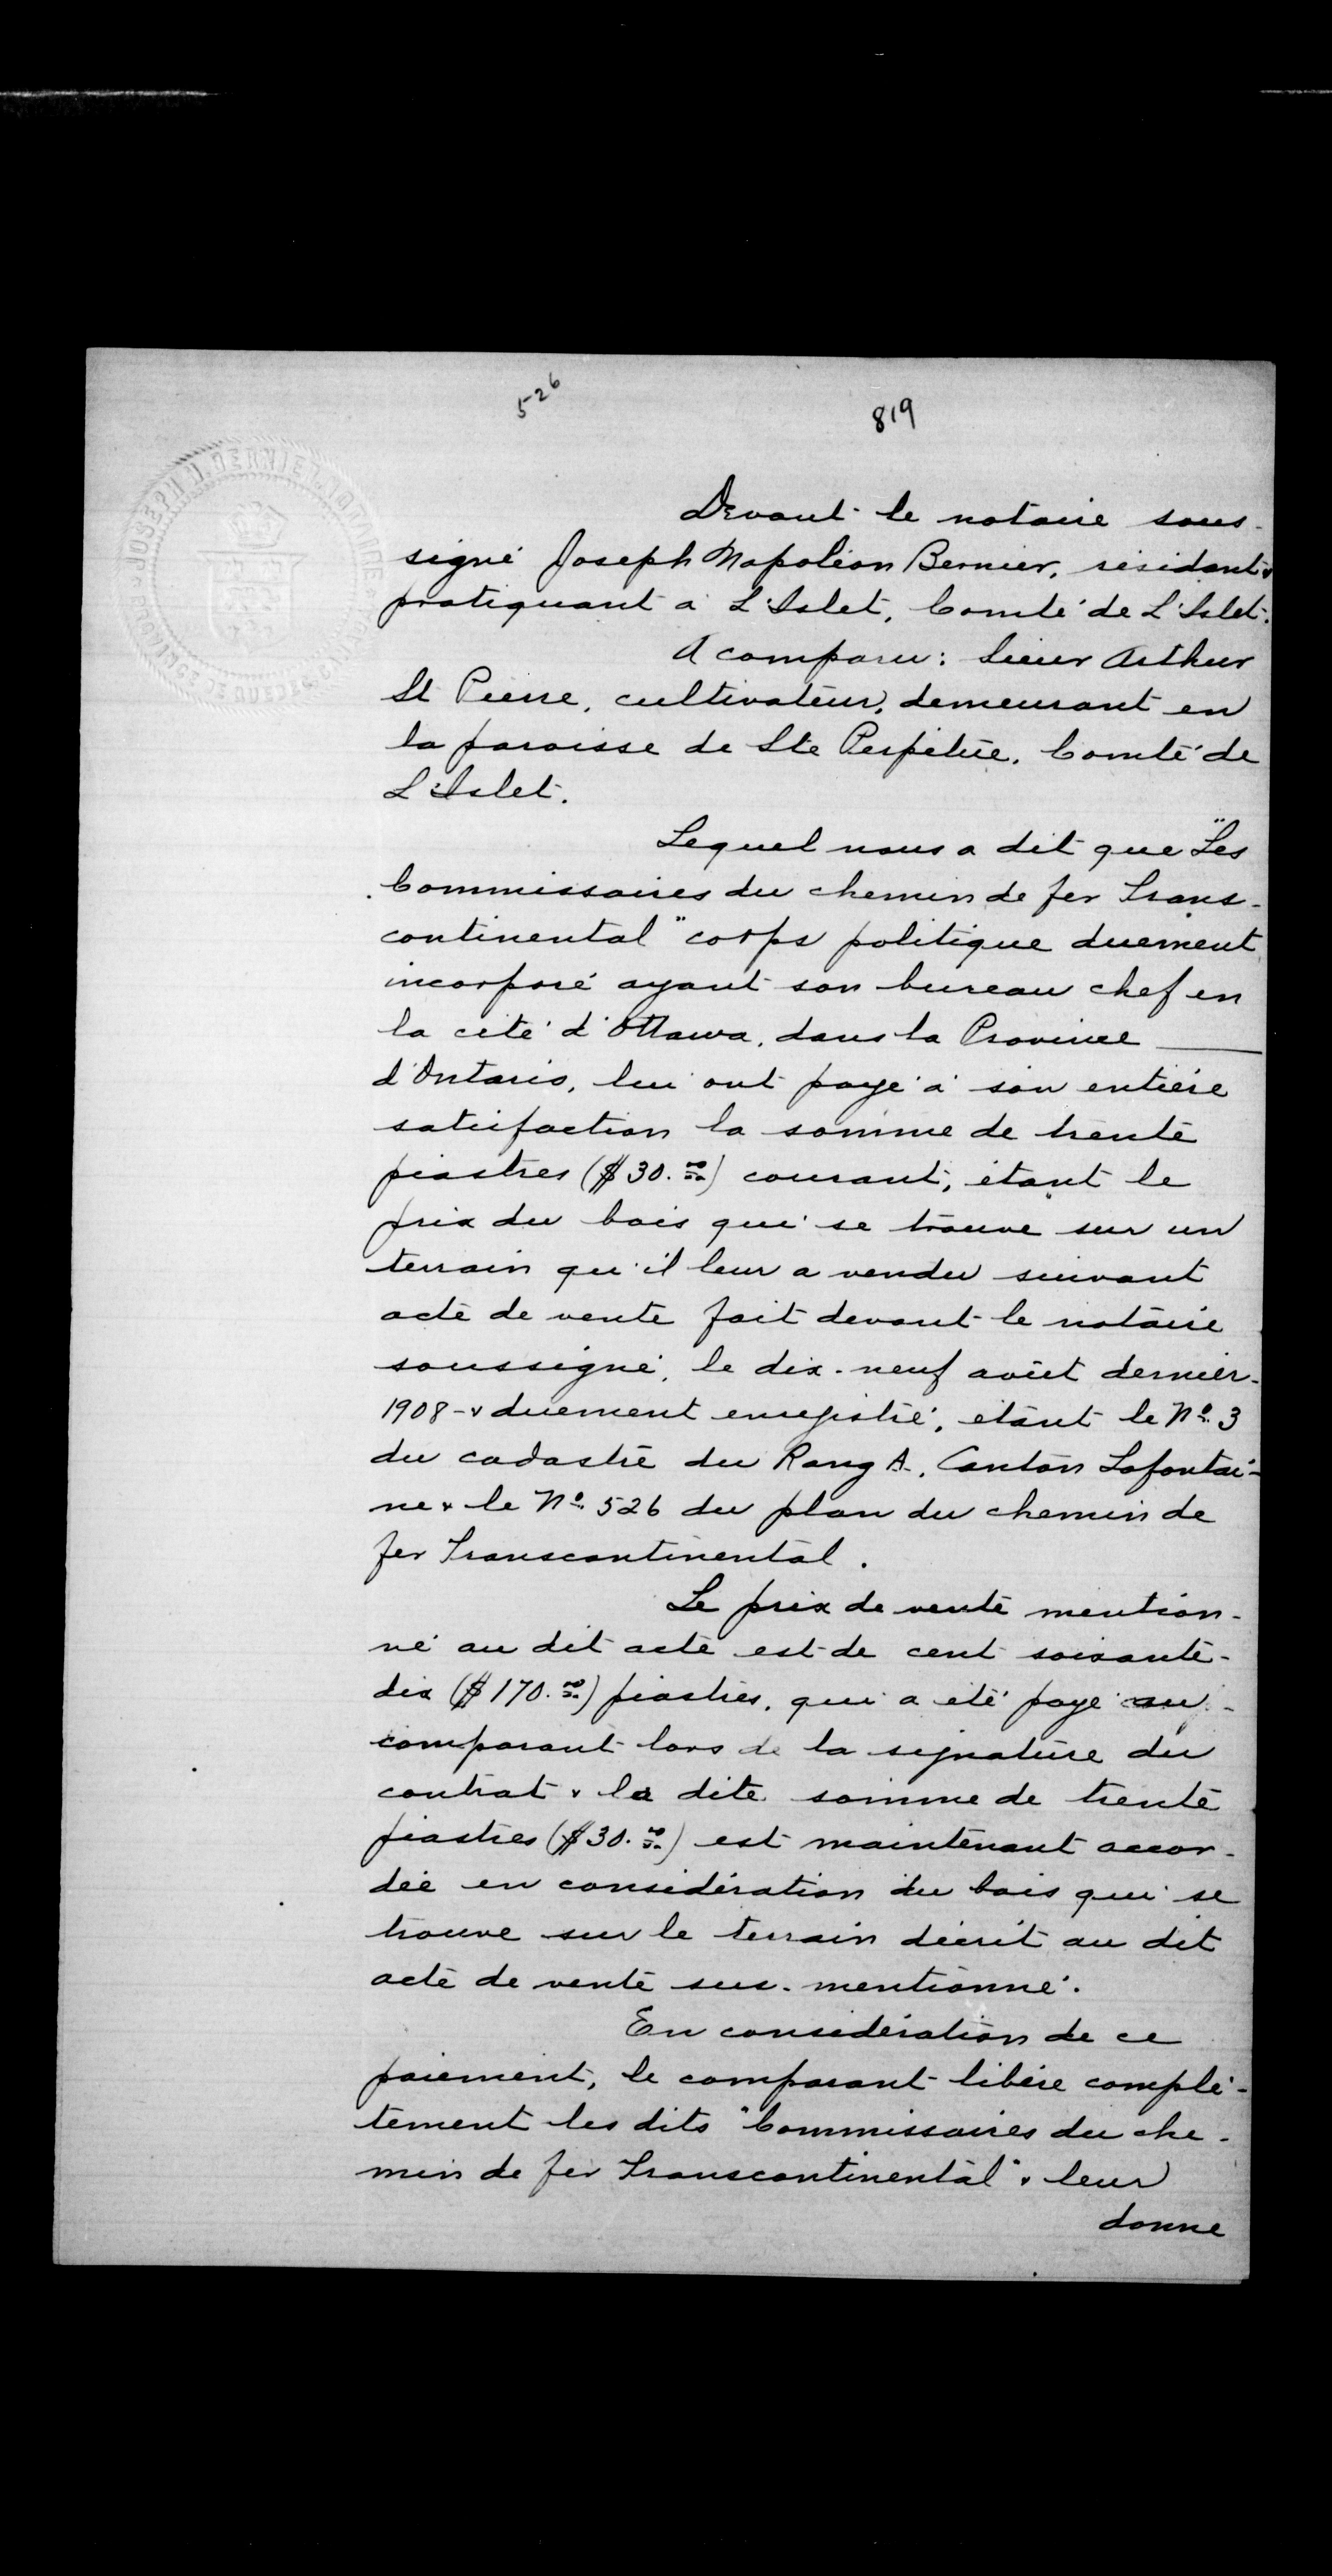 526
819
JOSEPH N. BERNIER, NOTAIRE
PROVINCE DE QUEBEC
Devant le notaire sous-
signé Joseph Napoléon Bernier, résidant &
pratiquant à L'Islet, Comté de L'Islet.
A comparu: Sieur Arthur
St Pierre, cultivateur, demeurant en
la paroisse de Ste Perpétue, Comté de
L'Islet.
Lequel nous a dit que "Les
Commissaires du chemin de fer Trans-
continental" corps politique duement
incorporé ayant son bureau chef en
la cité d'Ottawa, dans la Province
d'Ontario, lui ont payé à son entière
satisfaction la somme de trente
piastres ($30.00) courant, étant le
prix du bois qui se trouve sur un
terrain qu'il leur a vendu suivant
acte de vente fait devant le notaire
soussigné, le dix-neuf août dernier-
1908 - & duement enregistré, étant le No. 3
du cadastre du Rang A, Canton Lafontai-
ne & le No. 526 du plan du chemin de
fer Transcontinental.
Le prix de vente mention-
né au dit acte est de cent soixante-
dix ($170.00) piastres, qui a été payé au
comparant lors de la signature du
contrat & la dite somme de trente
piastres ($30.00) est maintenant accor-
dée en considération du bois qui se
trouve sur le terrain décrit au dit
acte de vente sus-mentionné.
En considération de ce
paiement, le comparant libère complè-
tement les dits "Commissaires du che-
min de fer Transcontinental" & leur
donne